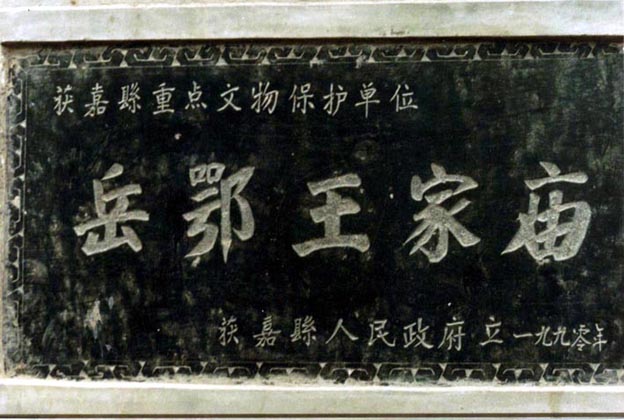 获嘉縣重点文物保护单位
岳鄂王家庙
获嘉縣人民政府立一九九零年